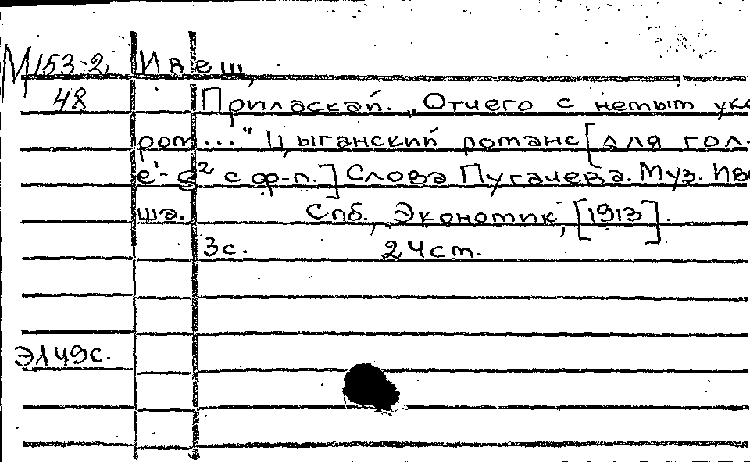 М 153-2, Ивеш,
48 Приласкай. „Отчего с немым укo
ром..." Цыганский романс [для гол.
e¹-g² с ф-п.] Слова Пугачева. Муз. Иве
ша. Спб., Экономик, [1913].
3с. 24см.
Э149с.